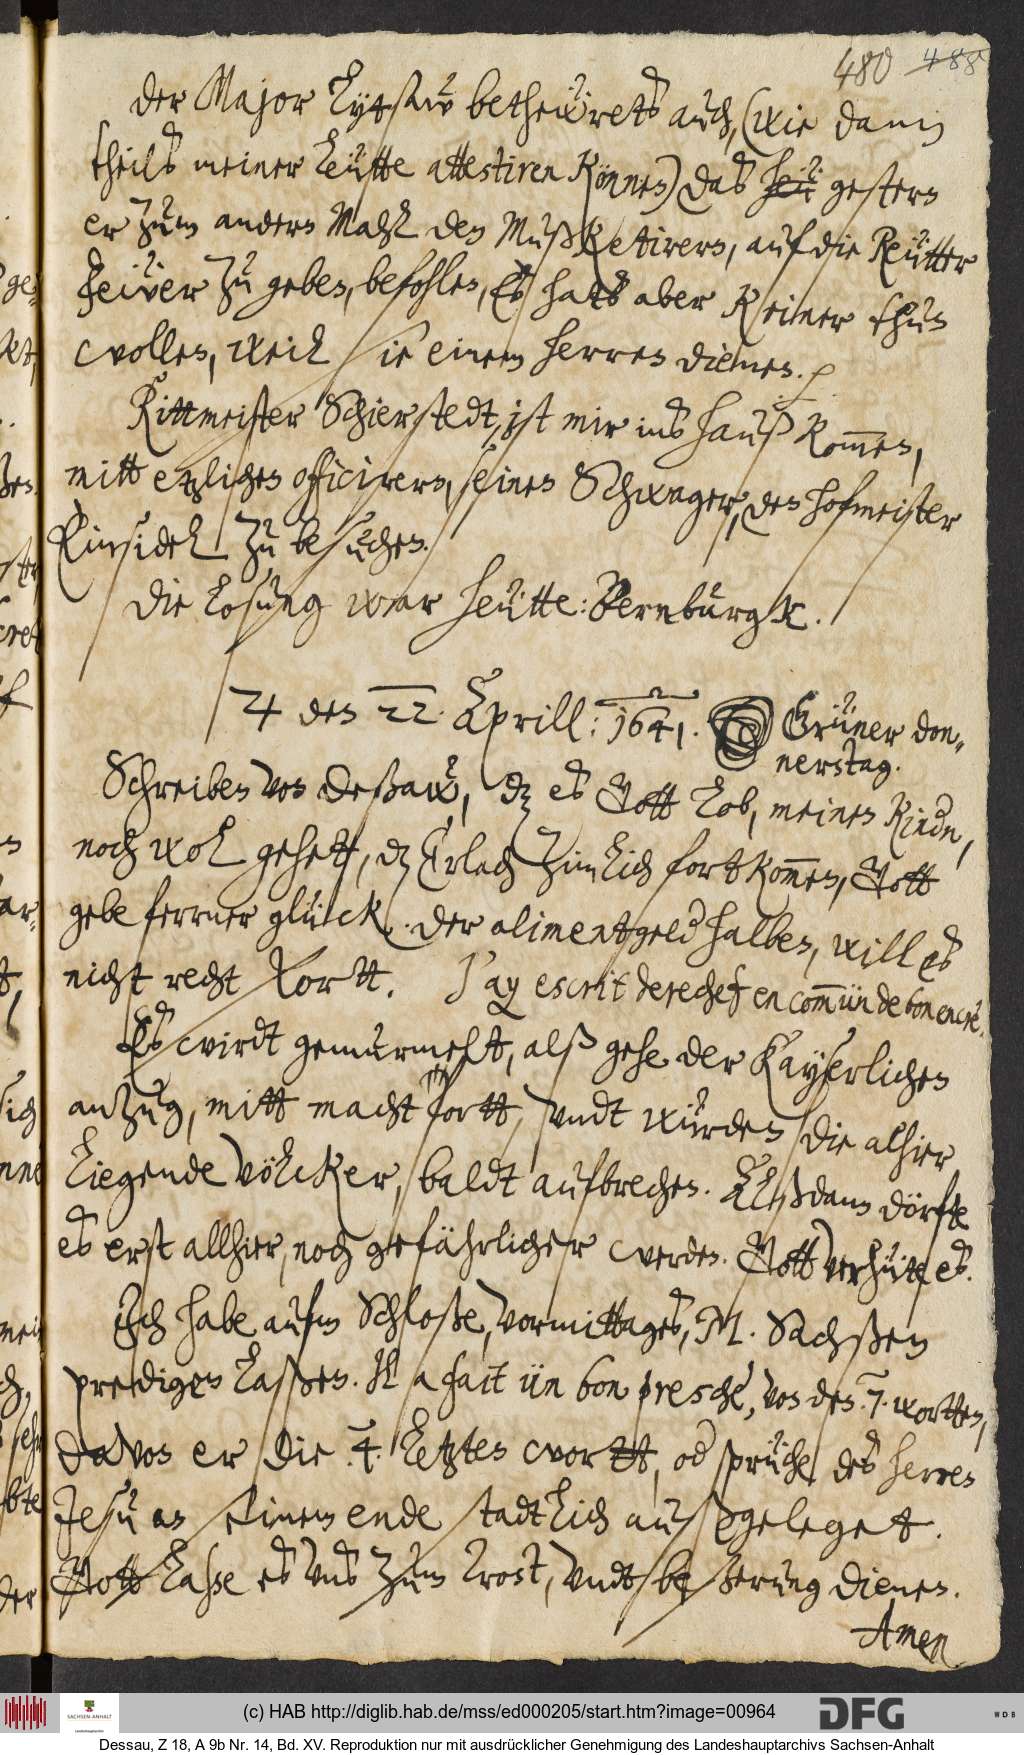 480 488
Der Major Lytsaw betheẅrets auch, (wie dann
theils meiner Leütte attestiren können) das heü gestern
er zum andern Mahl den Mußketirern, auf die Reütter
feiver zu geben, befohlen, Es hats aber keiner thun
wollen, weil sie einem herren dienen. p
Rittmeister Schierstedt, ist mir ins hauß kom̅en,
mitt etzlichen officirern, seinen Schwager, den hofmeister
Einsidel zu besuchen.
Die Losung war heütte: Bernburgk.
♃ den 22. Aprill: 1641. Grüner don-
nerstag.
Schreiben von Deßaw, dz es Gott lob, meinen Kindn,
noch wol gehett, dz Erlach zimlich fortkom̅en, Gott
gebe ferrner glück. Der alimentgeld halben, will es
nicht recht fortt. J'ay escrit derechef en com̅ün de bon encre.
Es wirdt gemurmelt, alß gehe der Kayserlichen
anzug, mitt macht fortt, vndt würden die alhier
liegende völcker, baldt aufbrechen. Alßdann dörfte
es erst allhier, noch gefährlicher werden. Gott verhüte es.
Ich habe aufm Schloße, vormittages, M. Sachßen
predigen laßen. Il a fait ün bon presche, von den 7. wortten,
davon er die 4. letzten wortt, od sprüche des herren
Jesu an seinem ende stadtlich außgeleget.
Gott lasse es vns zum trost, vndt beßerung dienen.
Amen
(c) HAB http://diglib.hab.de/mss/ed000205/start.htm?image=00964
SACHSEN-ANHALT
Landeshauptarchiv
DFG
WDB
Dessau, Z 18, A 9b Nr. 14, Bd. XV. Reproduktion nur mit ausdrücklicher Genehmigung des Landeshauptarchivs Sachsen-Anhalt